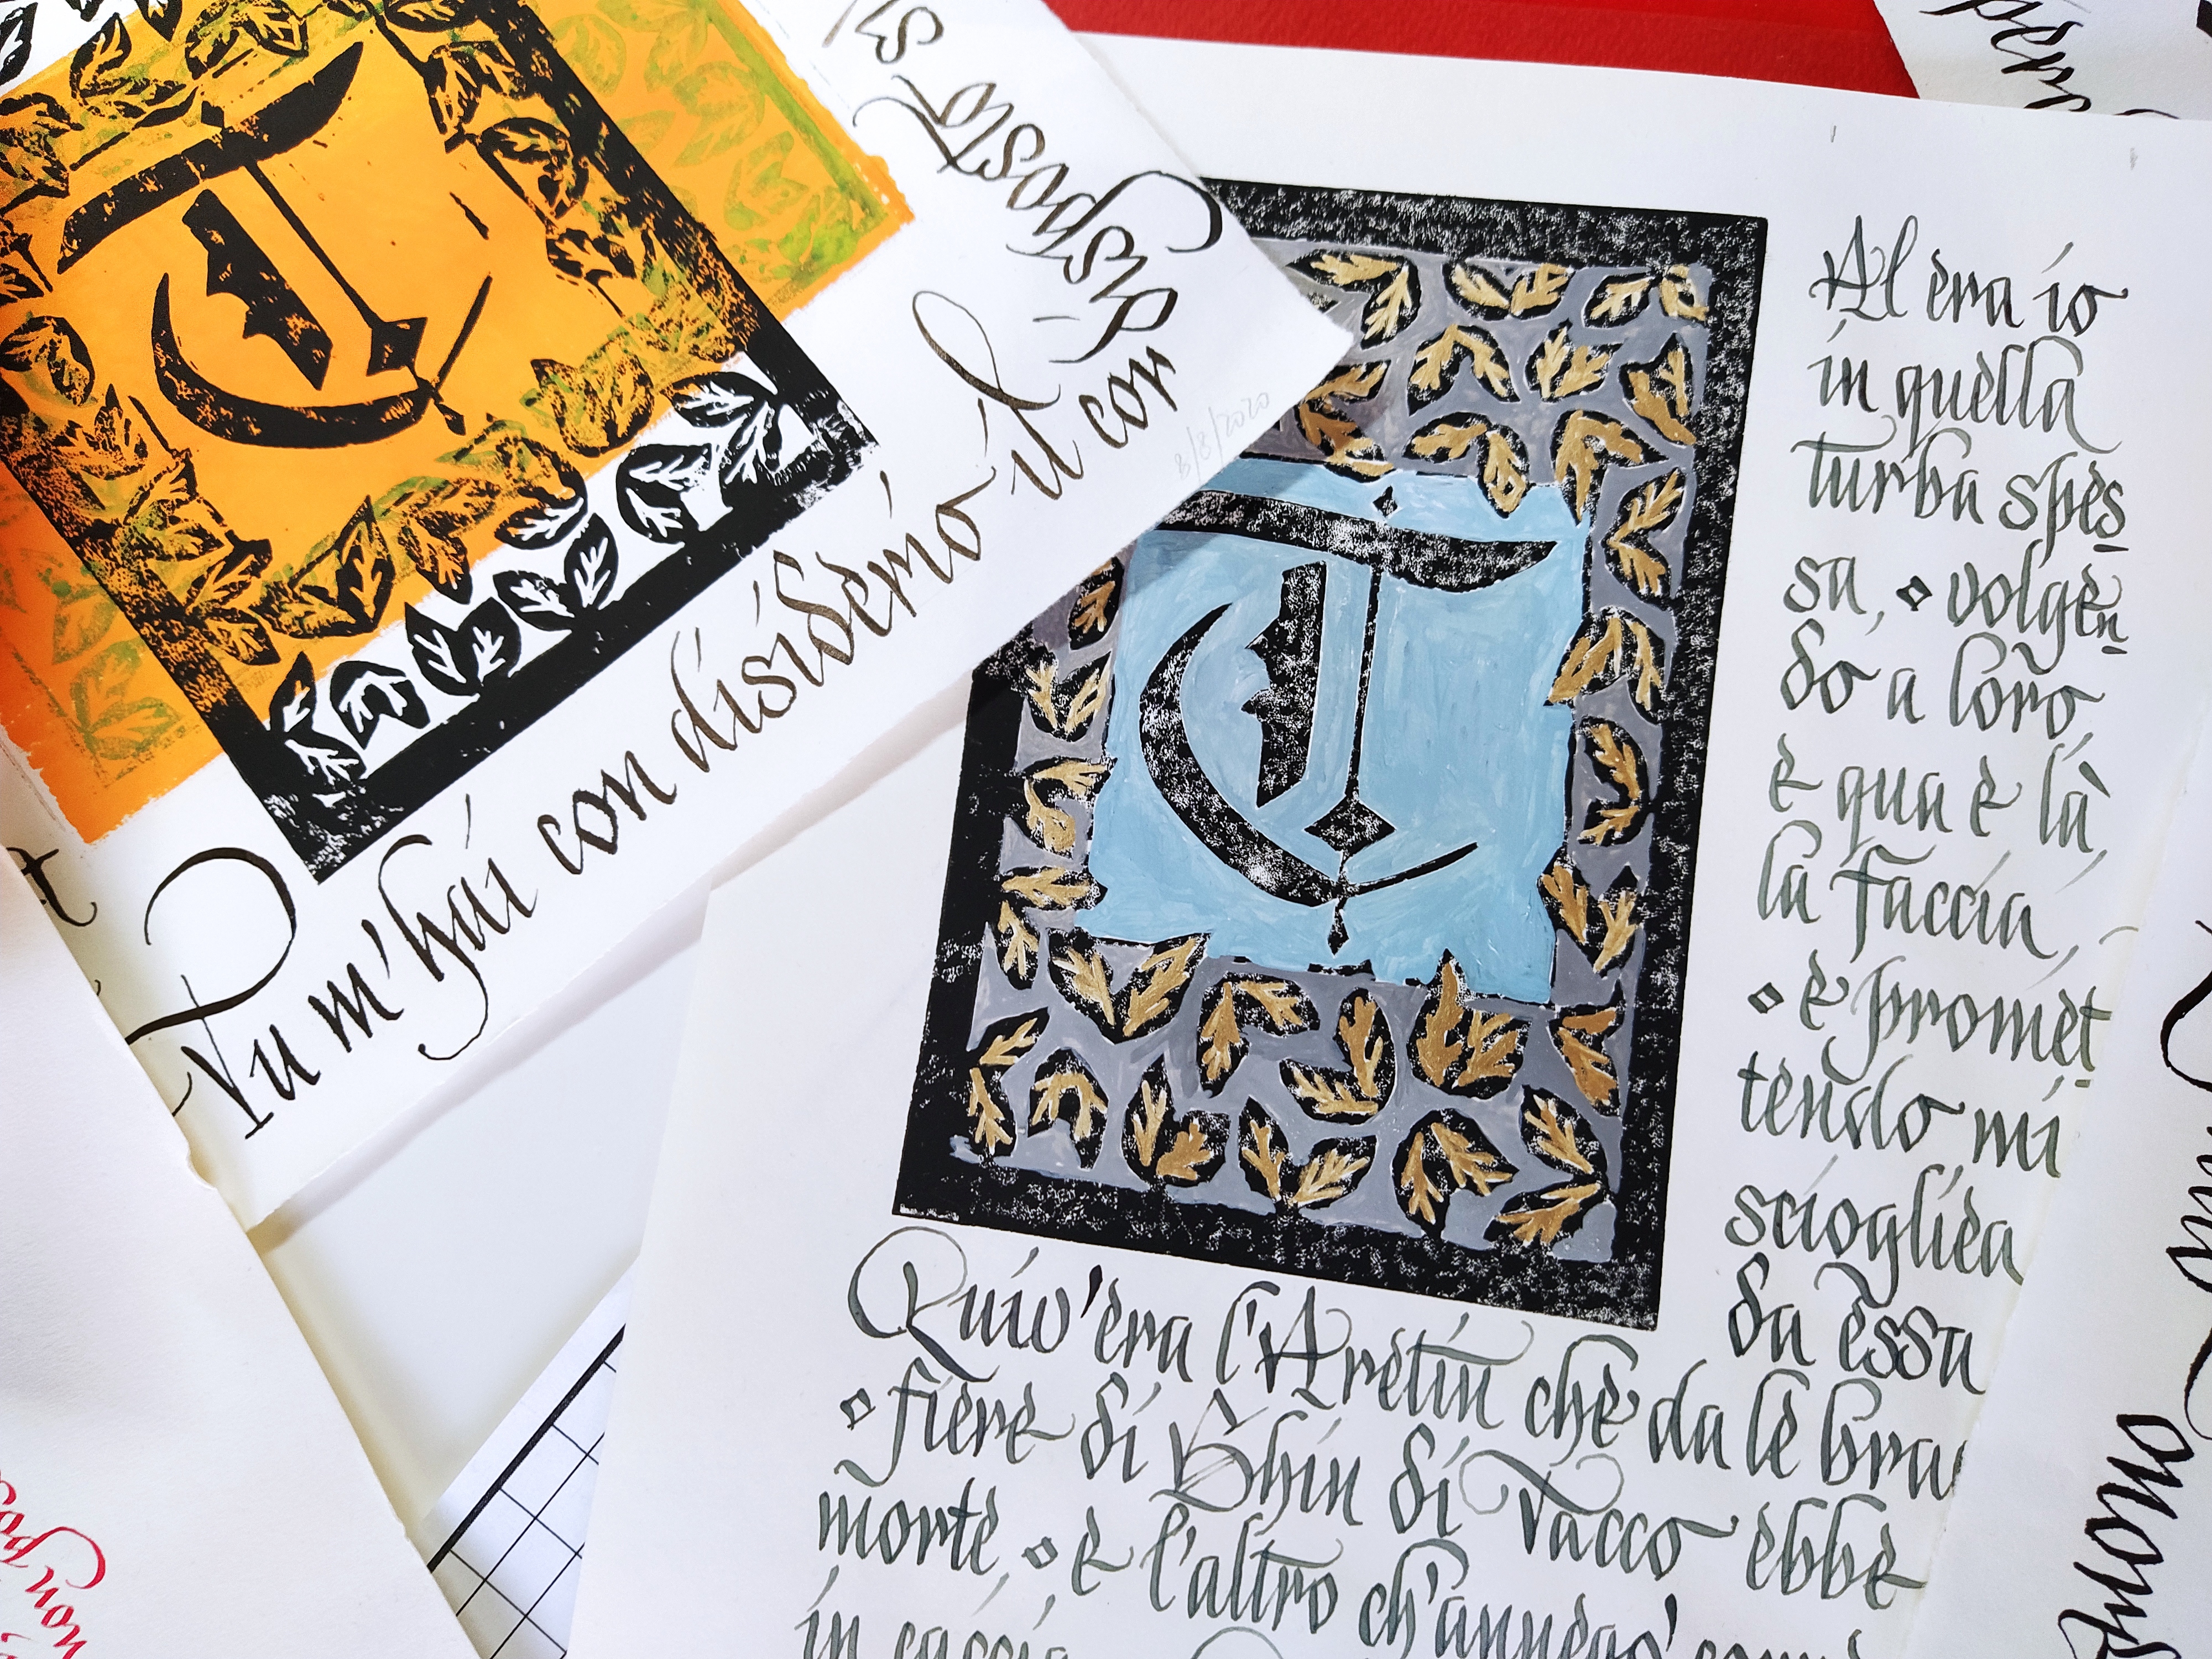 T
Tu m'hai con disiderio il cor
disposto sì
8/8/2020
T
Al era io
in quella
turba spes
sa, volgen
do a loro
e qua e là
la faccia,
e promet
tendo mi
sciogliea
da essa
Quiv'era l'Aretin che da le bra
fiere di Ghin di Tacco ebbe
morte, e l'altro ch'annegò
in caccia